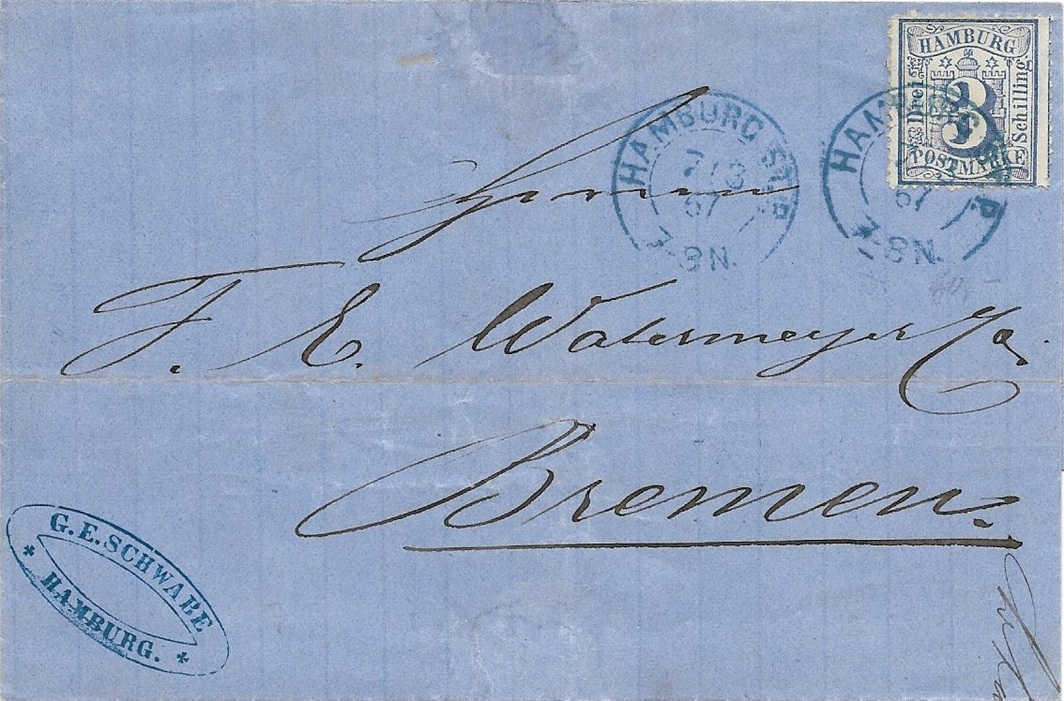 HAMBURG
Drei
3
Schilling
POSTMARKE
HAMBURG ST.P.
7/3
67
7-8N.
HAMBURG ST.P.
67
7-8N.
Herren
F. E. Watermeyer & Co
Bremen.
G. E. SCHWABE
* HAMBURG. *